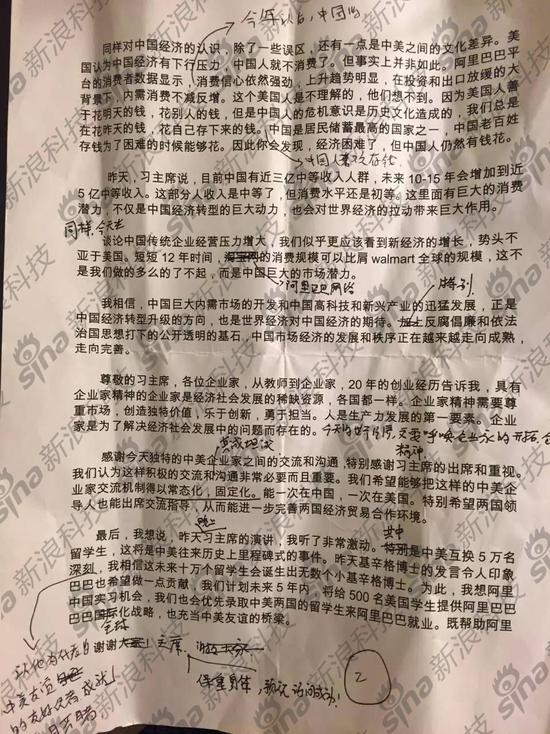 今年以后，中国的
同样对中国经济的认识，除了一些误区，还有一点是中美之间的文化差异。美
国认为中国经济有下行压力，中国人就不消费了。但事实上并非如此。阿里巴巴平
台的消费者数据显示，消费信心依然强劲，上升趋势明显，在投资和出口放缓的大
背景下，内需消费不减反增。这个美国人是不理解的，他们想不到。因为美国人善
于花明天的钱，花别人的钱，但是中国人的危机意识是历史文化造成的，我们总是
在花昨天的钱，花自己存下来的钱。中国是居民储蓄最高的国家之一，中国老百姓
存钱为了困难的时候能够花。因此你会发现，经济困难了，但中国人仍然有钱花。
中国人喜欢存钱
昨天，习主席说，目前中国有近三亿中等收入人群，未来 10-15 年会增加到近
5 亿中等收入。这部分人收入是中等了，但消费水平还是初等。这里面有巨大的消费
潜力，不仅是中国经济转型的巨大动力，也会对世界经济的拉动带来巨大作用。
同样，今天
谈论中国传统企业经营压力增大，我们似乎更应该看到新经济的增长，势头不
亚于美国。短短 12 年时间，淘宝网的消费规模可以比肩 walmart 全球的规模，这不
是我们做的多么的了不起，而是中国巨大的市场潜力。
阿里巴巴网络
特别
我相信，中国巨大内需市场的开发和中国高科技和新兴产业的迅猛发展，正是
中国经济转型升级的方向，也是世界经济对中国经济的期待。加上反腐倡廉和依法
治国思想打下的公开透明的基石，中国市场经济的发展和秩序正在越来越走向成熟，
走向完善。
尊敬的习主席，各位企业家，从教师到企业家，20 年的创业经历告诉我，具有
企业家精神的企业家是经济社会发展的稀缺资源，各国都一样。企业家精神需要尊
重市场，创造独特价值，乐于创新，勇于担当。人是生产力发展的第一要素。企业
家是为了解决经济社会发展中的问题而存在的。
精神
感谢今天独特的中美企业家之间的交流和沟通，特别感谢习主席的出席和重视。
我们认为这样积极的交流和沟通非常必要而且重要。我们希望能够把这样的中美企
业家交流机制得以常态化，固定化。能一次在中国，一次在美国。特别希望两国领
导人也能出席交流指导，从而能进一步完善两国经济贸易合作环境。
其中
最后，我想说，昨天习主席的演讲，我听了非常激动。特别是中美互换 5 万名
留学生，这将是中美往来历史上里程碑式的事件。昨天基辛格博士的发言令人印象
深刻，我相信这未来十万个留学生会诞生出无数个小基辛格博士。为此，我想阿里
巴巴也希望做一点贡献，我们计划未来 5 年内，将给 500 名美国学生提供阿里巴巴
中国实习机会，我们也会优先录取中美两国的留学生来阿里巴巴就业。既帮助阿里
巴巴国际化战略，也充当中美友谊的桥梁。
全球
谢谢 主席
保重身体，预祝访问成功！
2
sina 新浪科技